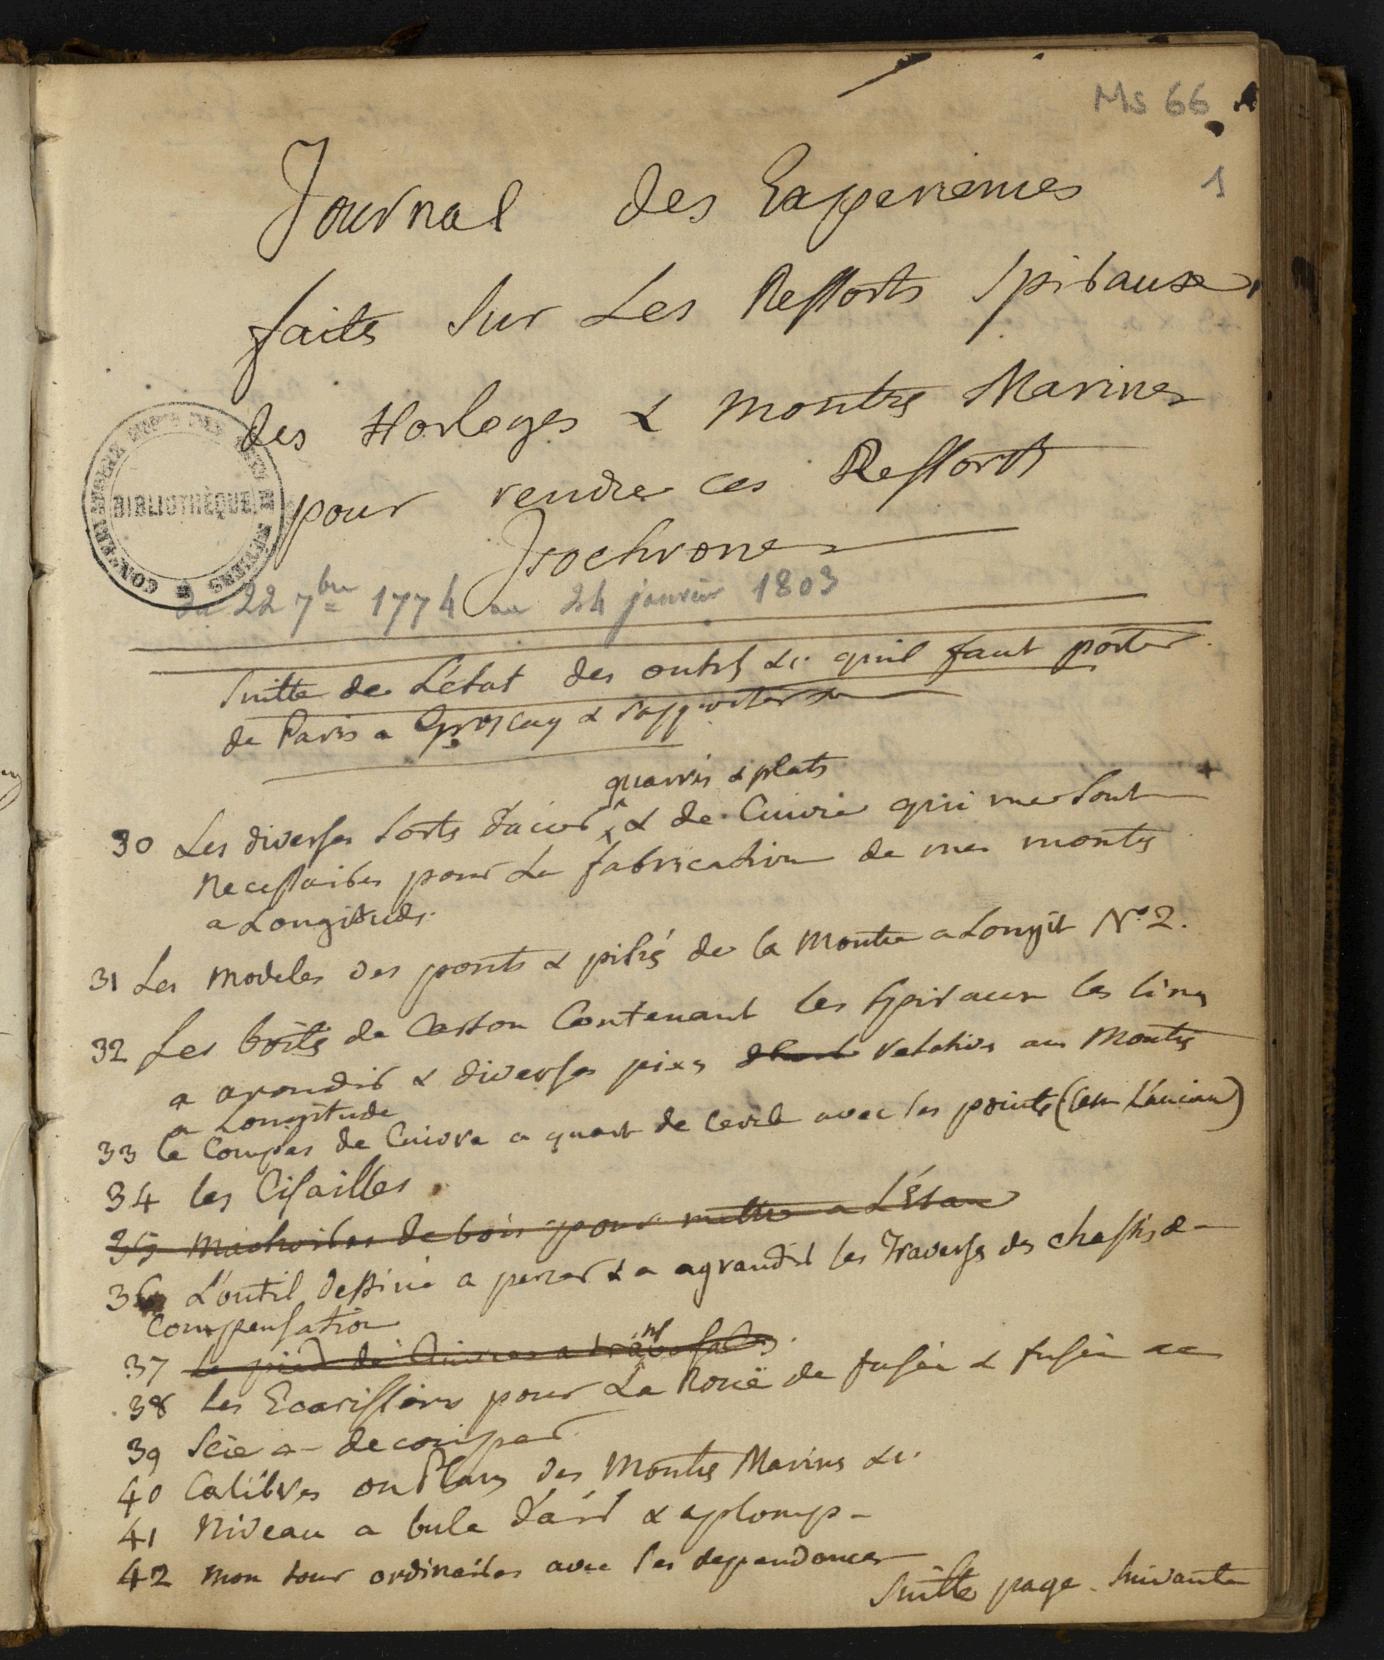 Ms 66
1
Journal des Experiences
faites sur Les Ressorts Spiraux,
des Horloges & montres Marines
pour rendre ces Ressorts
Isochrones
BIBLIOTHÈQUE
du 22 7bre 1774 au 24 janvier 1803
Suitte de L'état des outils &c. qu'il faut porter
de Paris a Groslay & rapporter
quarrés & plats
30 Les diverses sortes d'acier & de Cuivre qui me sont +
Necessaires pour La fabrication de mes montres
a Longitudes.
31 Les modeles des ponts & piliés de la Montre a Longit N° 2.
32 Les boîtes de Carton Contenant les Spiraux les limes
a arondir & diverses pieces relatives aux Montres
a Longitude
33 Le Compas de Cuivre a quart de cercle avec ses pointes (L'ancien)
34 les Cisailles
35 machoires de bois pour mettre a L'Etau
36 L'outil destiné a percer & a agrandir les Traverses des chassis de
Compensation
37 le pied de Cuivre a
38 Les Ecarissoirs pour La Rouë de fusée & fusée
39 Scie a decouper
40 Calibres ou Plans des Montres Marines &c.
41 Niveau a bule d'air & aplomp
42 mon tour ordinaires avec ses dependances
Suitte page Suivante